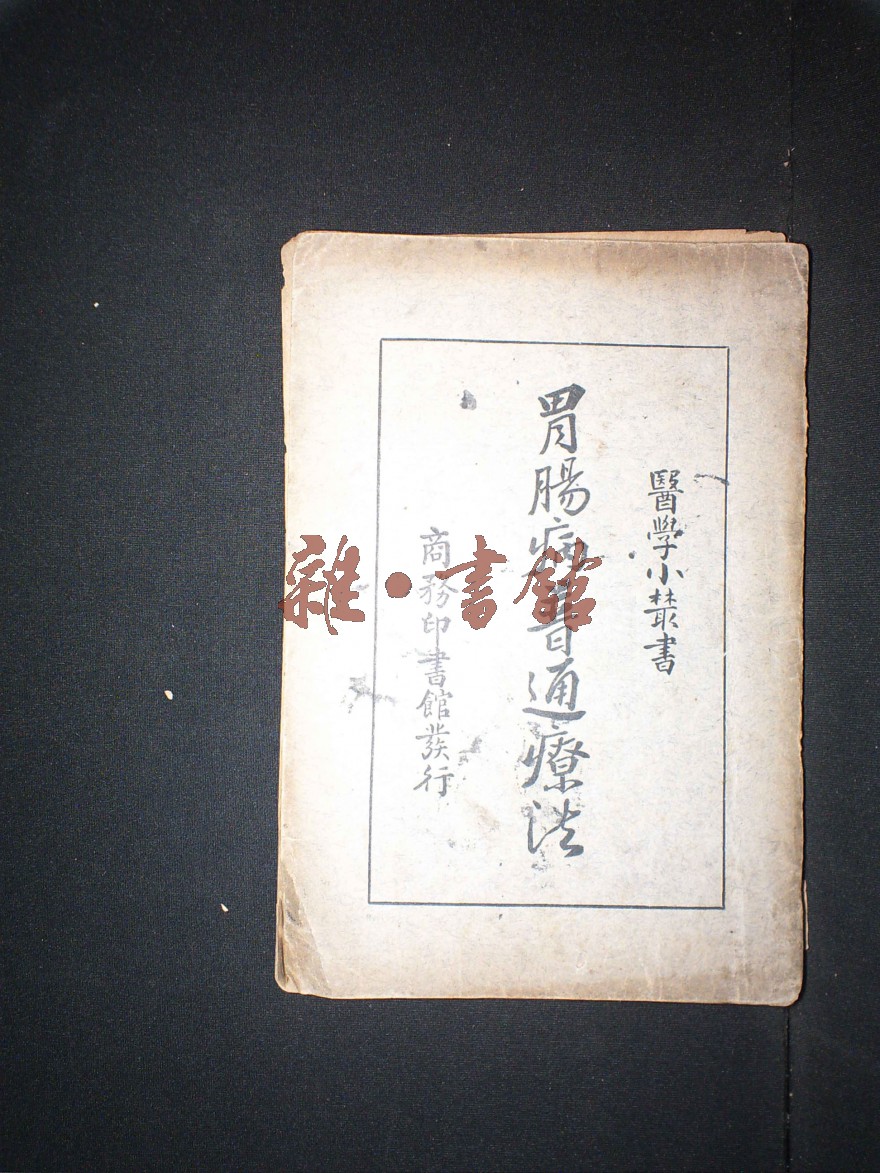 醫學小叢書
胃腸病普通療法
商務印書館發行
雜·書館